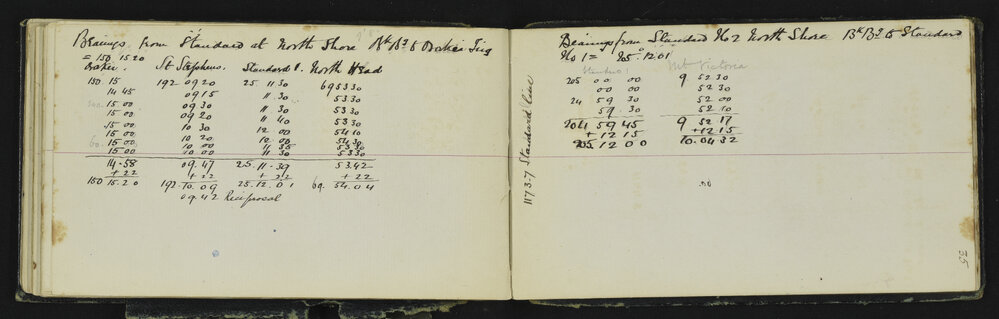 Bearings from Standard at North Shore Bk Bg to Trig
= 150 15 20
Baker. St Stephens. Standard 1. North Head
150 15 192 09 20 25 11 30 69 53 30
14 45 09 15 11. 30 53 30
15 00 09 30 11 30 53 30
15 00 09 20 11 40 53 30
15 00 10 30 12 00 54 10
15 00 10 20 12 00 54 30
15 00 10 00 11 30 53 30
14-58 09. 47 25 11-39 53.42
+ 22 + 22 + 22 + 22
150 15.20 192.10.09 25.12.01 69. 54.04
09.42 Reciprocal
1173-7 Standard line
Bearings from Standard No 2 North Shore Bk Bg to Standard
No 1 = 205.12.01
Standard 1 Mt Victoria
205 00 00 9 52 30
00 00 52 30
24 59 30 52 00
59 30 52 10
204 59 45 9 52 17
+ 12 15 + 12 15
205 12 00 10.04 32
35